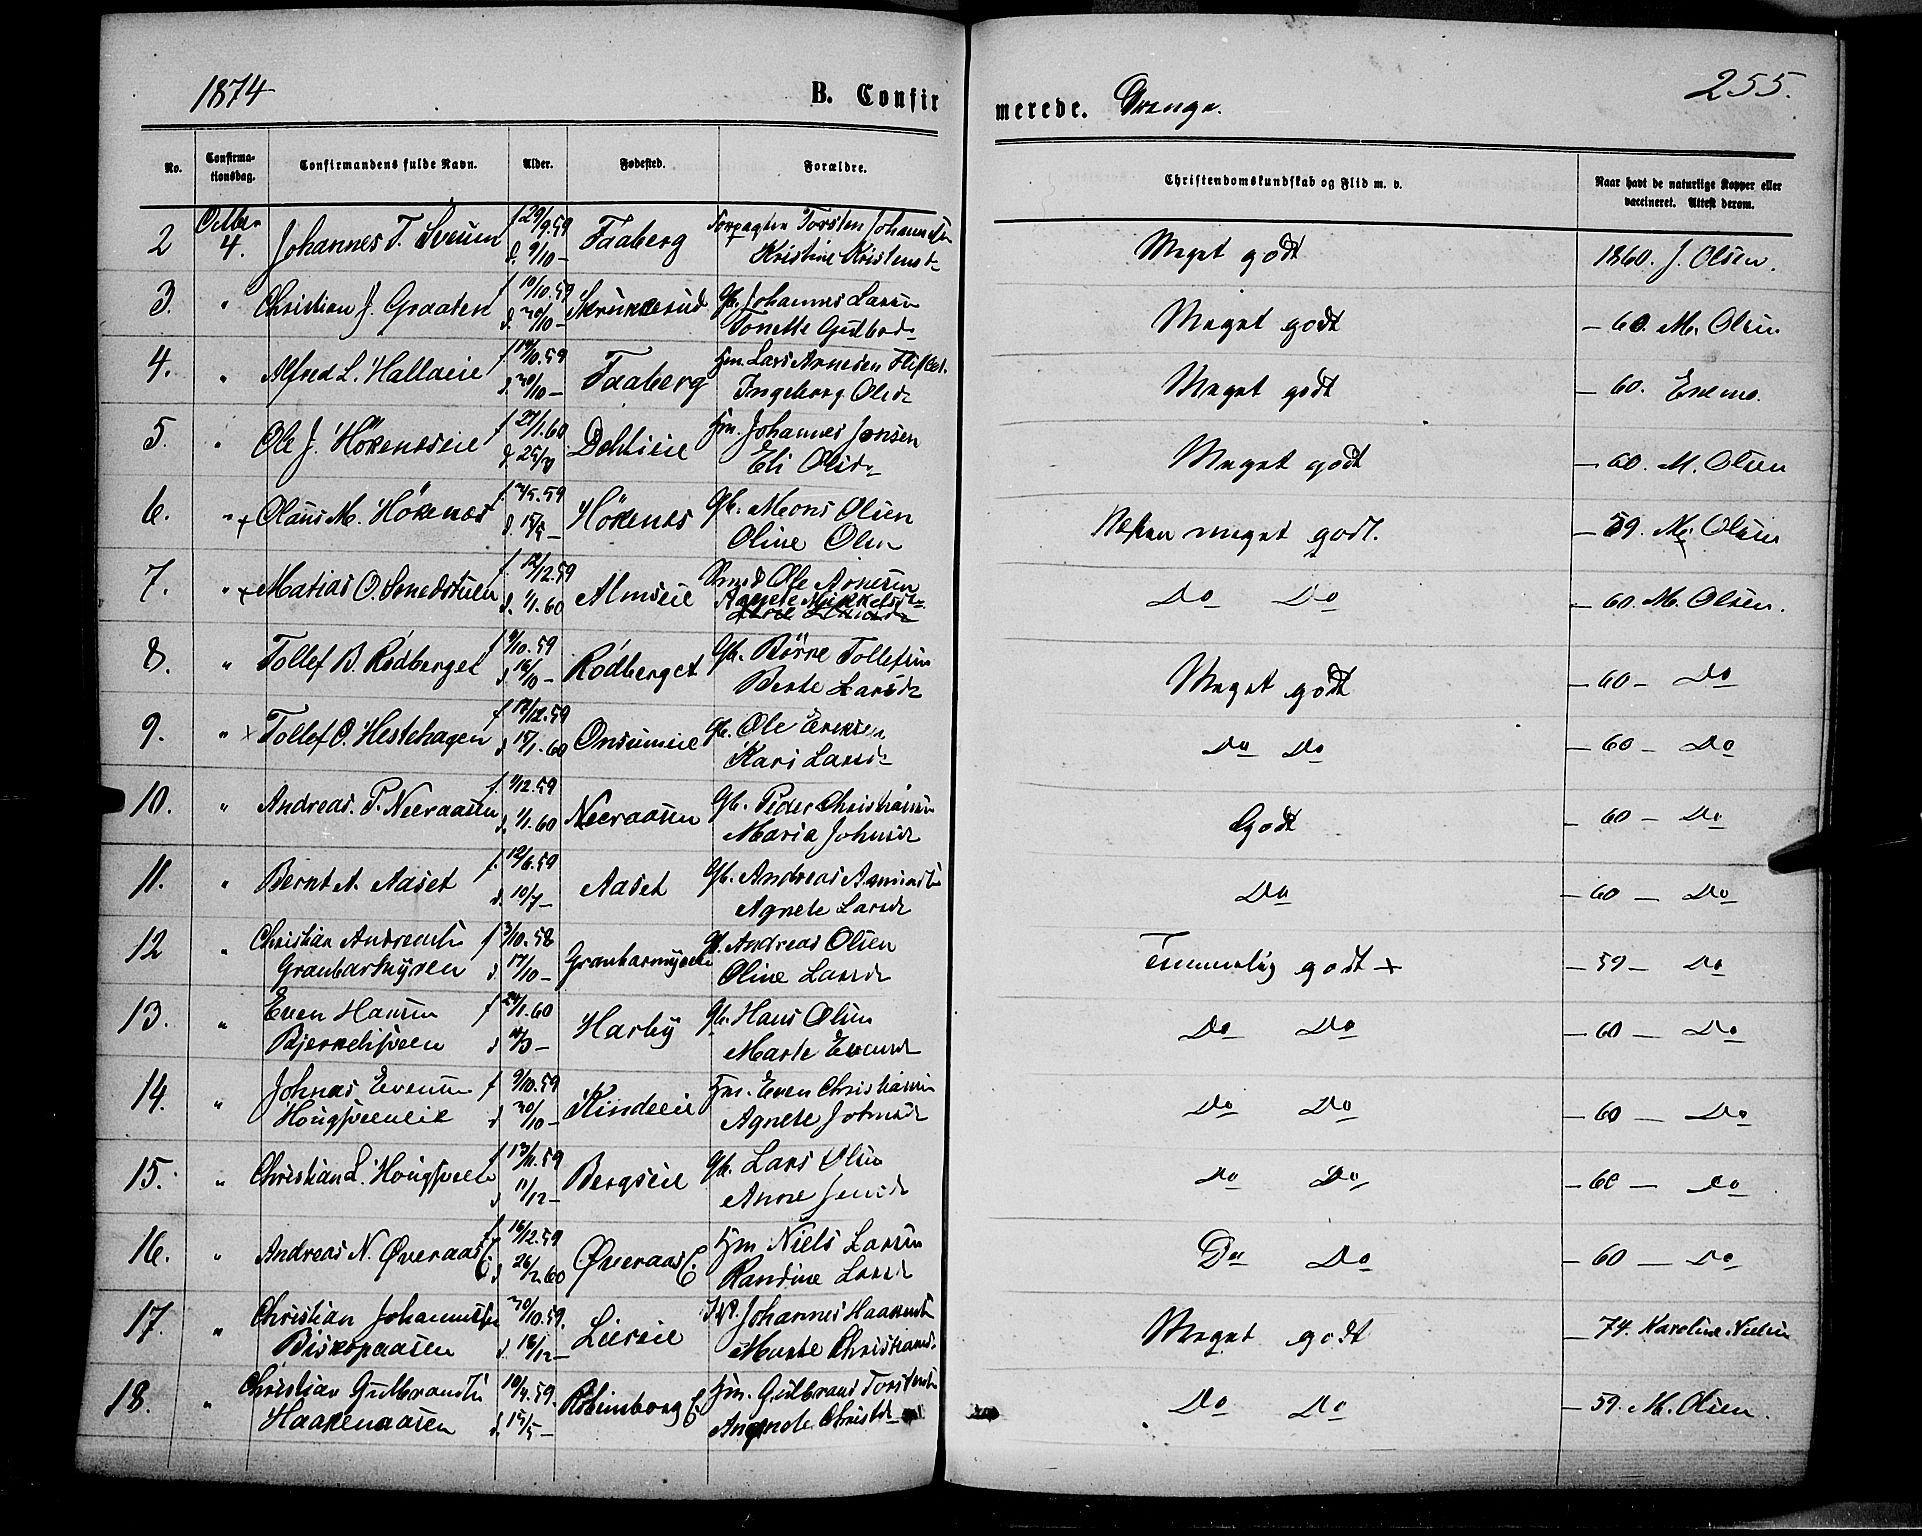 1874
B. Confirmerede. Drenge.
255.
No. Confirmationsdag. Confirmandens fulde Navn. Alder. Fødested. Forældre. Christendomskundskab og Flid m. v. Naar havt de naturlige Kopper eller vaccineret. Attest derom.
2 Octbr 4. Johannes T. Sveum f 29/9.59 d. 9/10 – Faaberg Forpagter Torsten Johannesen Kristine Kristensd. Meget godt 1860. J. Olsen.
3. " Christian J. Graaten f 10/10.59 d. 30/10 – Skrukkerud Gb. Johannes Larsen Tonette Gulbrd. Meget godt – 60. M. Olsen
4. " Alfred L. Hallaeie f 14/10.59 d. 30/10 – Faaberg Hm. Lars Arnesen Ingeborg Olsd. Meget godt – 60. Enemo.
5. " Ole J. Hökenæseie f 27/1.60 d. 25/3 Dehlieie Hm. Johannes Jensen Eli Olsd. Meget godt – 60. M. Olsen
6. " + Olaus M. Hökenæs f. 3/5.59 d. 15/5 – Hökenæs Gb. Mons Olsen Oline Olsen Næsten meget godt. – 59. M. Olsen
7. " + Matias O. Smedstuen f. 12/12.59 d. 1/1.60 Almseie Smed Ole Arnesen Agnete Mikkelsd. Do Do – 60. M. Olsen.
8. " Tollef B. Rødberget f 9/10.59 d 16/10 – Rödberget Gb. Börre Tollefsen Berte Larsd. Meget godt – 60 – Do
9. " x Tollef O. Hestehagen f 17/12.59 d 15/1.60 Onsumeie Gb. Ole Eriksen Kari Larsd. Do Do – 60 – Do
10. " Andreas P. Neeraasen f. 1/12.59 d. 1/1.60 Neeraasen Gb. Peder Christiansen Maria Johnsd. Godt – 60 – Do
11. " Bernt A. Aaset f. 12/6.59 d. 10/7 – Aaset Gb. Andreas Amundsen Agnete Larsd. Do – 60 – Do
12 " Christian Andreasen Granbarmyren f 3/10.58 d 17/10 – Granbarmyren Gb. Andreas Olsen Oline Larsd. Temmelig godt + – 59 – Do
13. " Even Hansen Bjerkelisveen f 24/1.60 d – Harby Gb. Hans Olsen Marte Evensd. Do Do – 60 – Do
14. " Johnas Evensen Hougsveeneie f 9/10.59 d 30/10 – Kindseie Hm. Even Christiansen Agnete Johnsd. Do Do – 60 – Do
15. " Christian L. Hougsveen f 13/11.59 d 11/12 – Bergseie Gb. Lars Olsen Anne Jensd. Do Do – 60 – Do
16. " Andreas N. Øveraas E. f. 16/12.59 d 26/2.60 Øveraas E. Hm Niels Larsen Randine Larsd. Do Do – 60 – Do
17. " Christian Johannessen Biskopaasen 30/10.59. d. 18/12 – Lierseie Johannes Haakensen Marte Christiansd. Meget godt – 74. Karoline Nielsen
18. " Christian Gulbrandsen Haakenaasen 10/4.59. d. 15/5 – E. Hm. Gulbrand Torstensen Agnete Christd. Do Do – 59. M. Olsen.